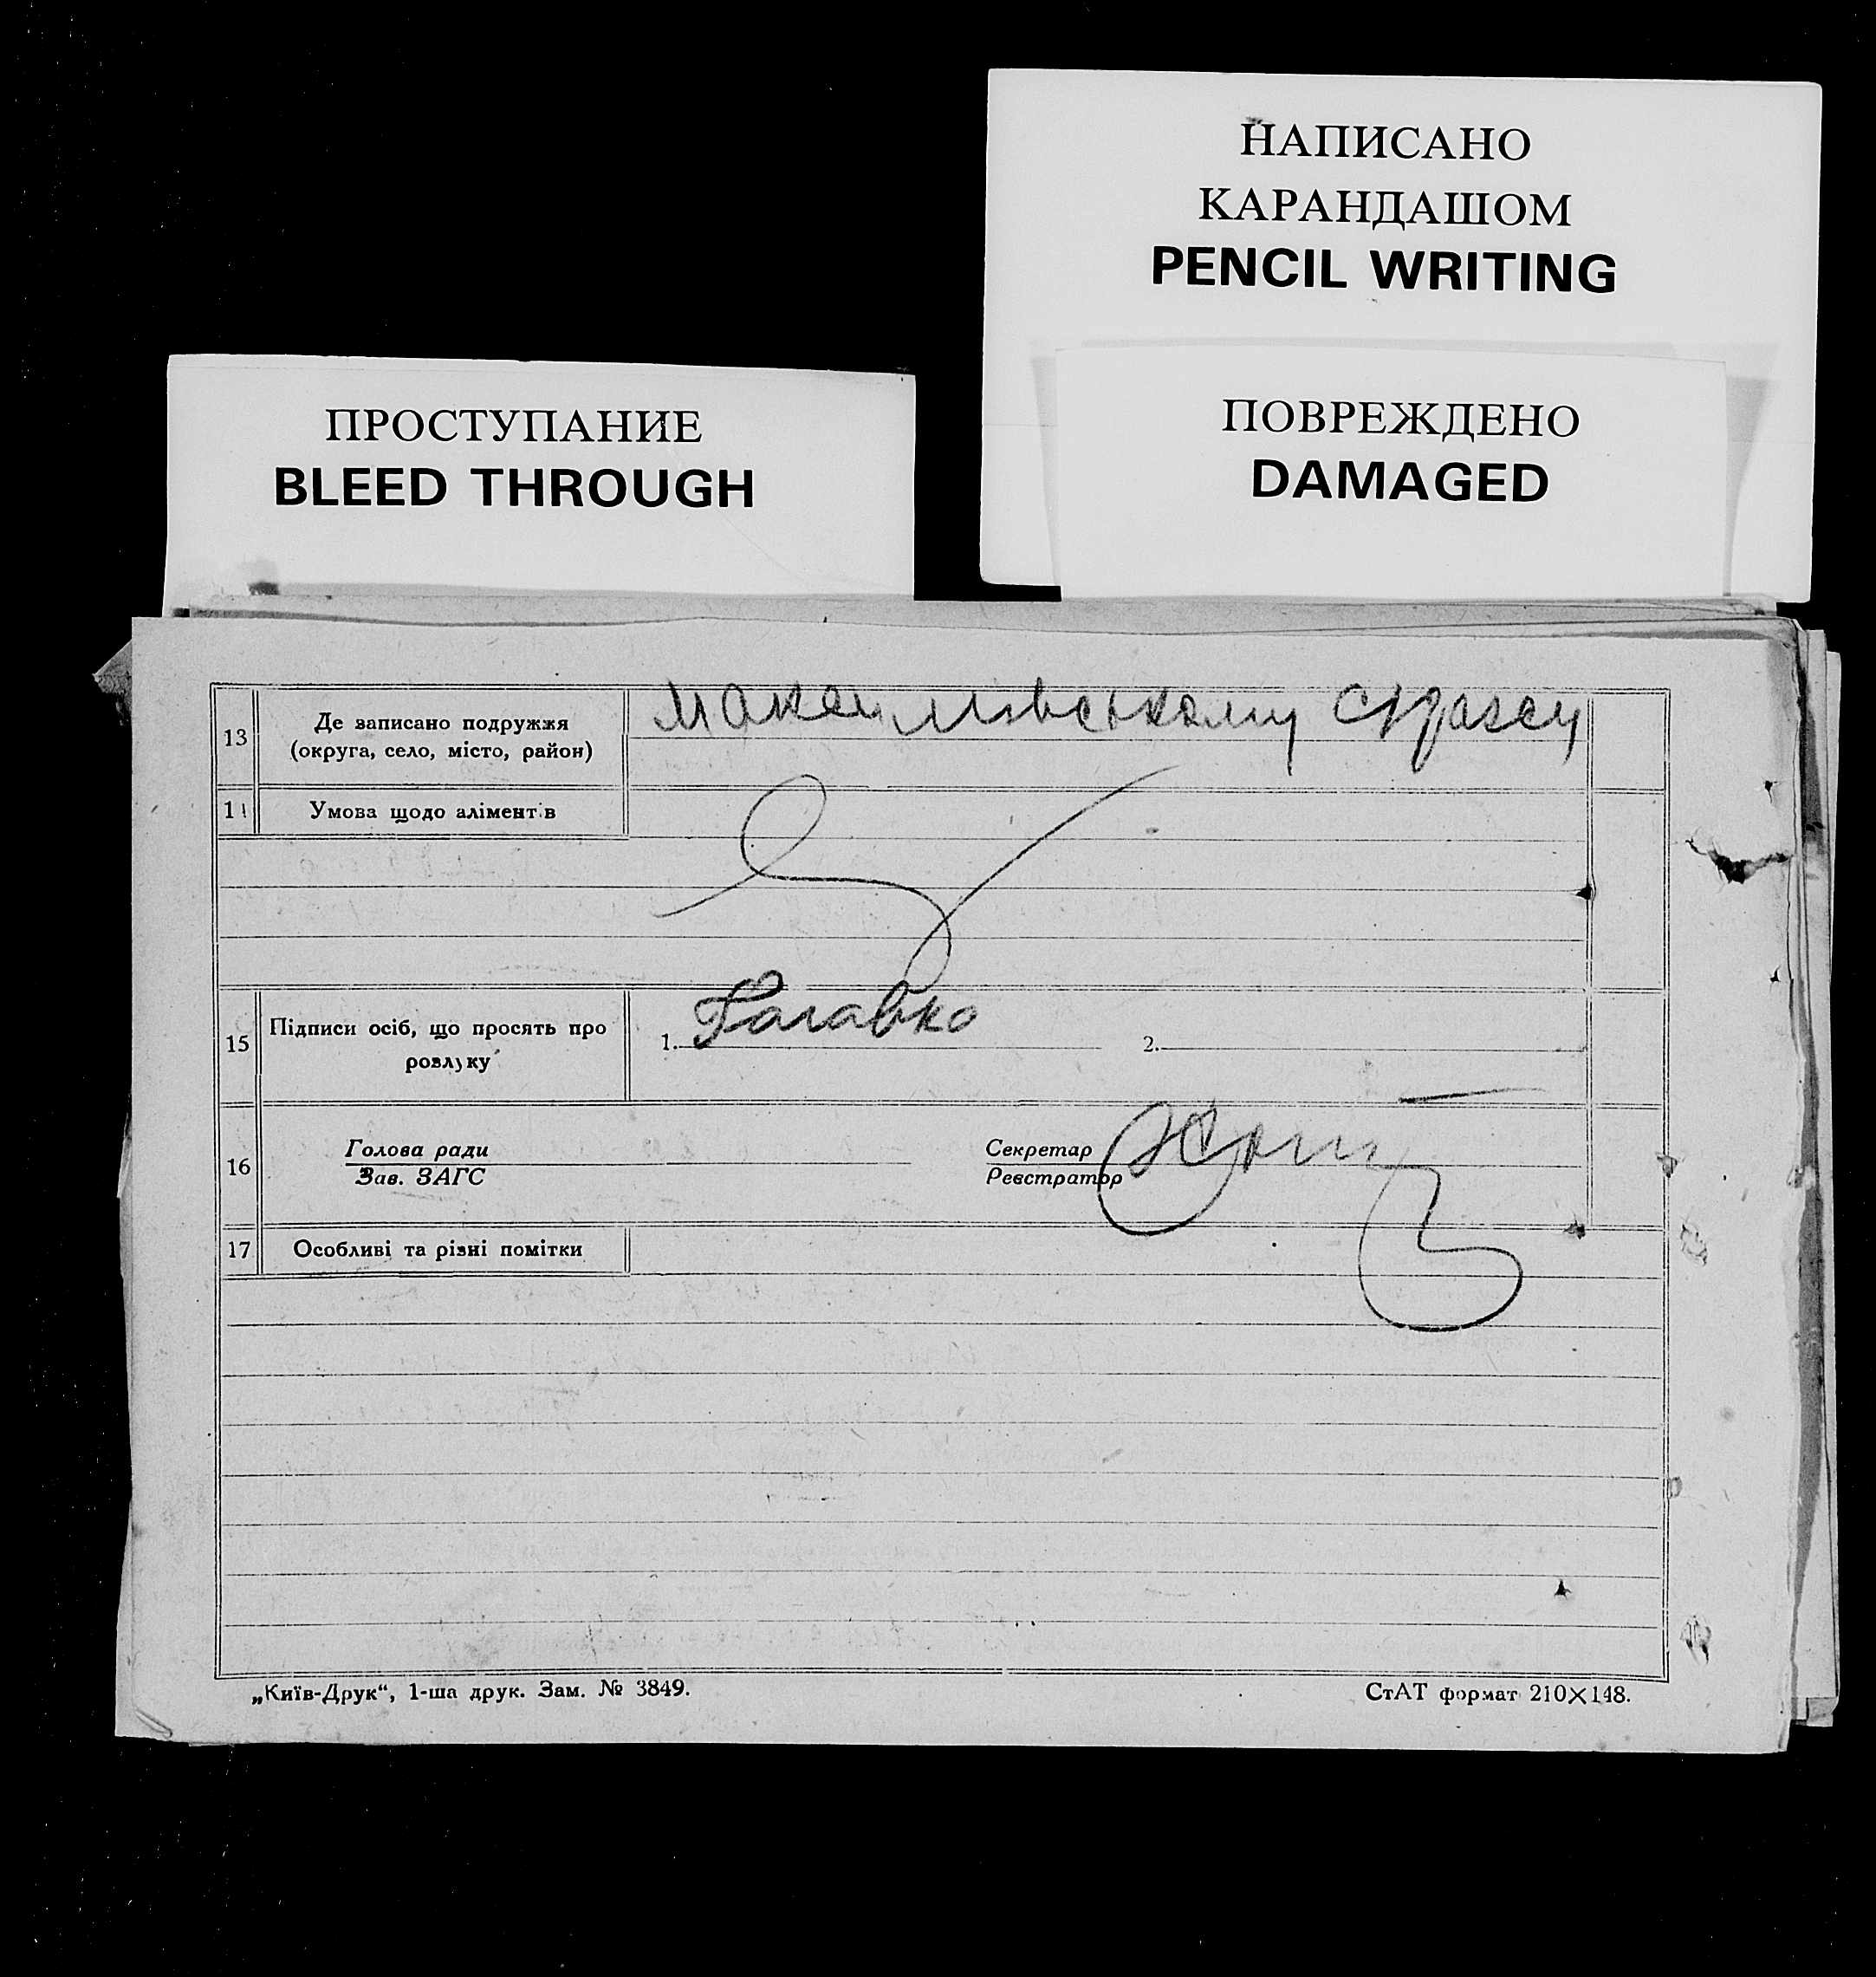 НАПИСАНО
КАРАНДАШОМ
PENCIL WRITING
ПРОСТУПАНИЕ
BLEED THROUGH
ПОВРЕЖДЕНО
DAMAGED
13 Де записано подружжя
(округа, село, місто, район)
14 Умова щодо аліментів
15 Підписи осіб, що просять про
розлуку
1. 2.
16 Голова ради
Зав. ЗАГС
Секретар
Реєстратор
17 Особливі та різні помітки
„Київ-Друк“, 1-ша друк. Зам. № 3849.
СтАТ формат 210×148.